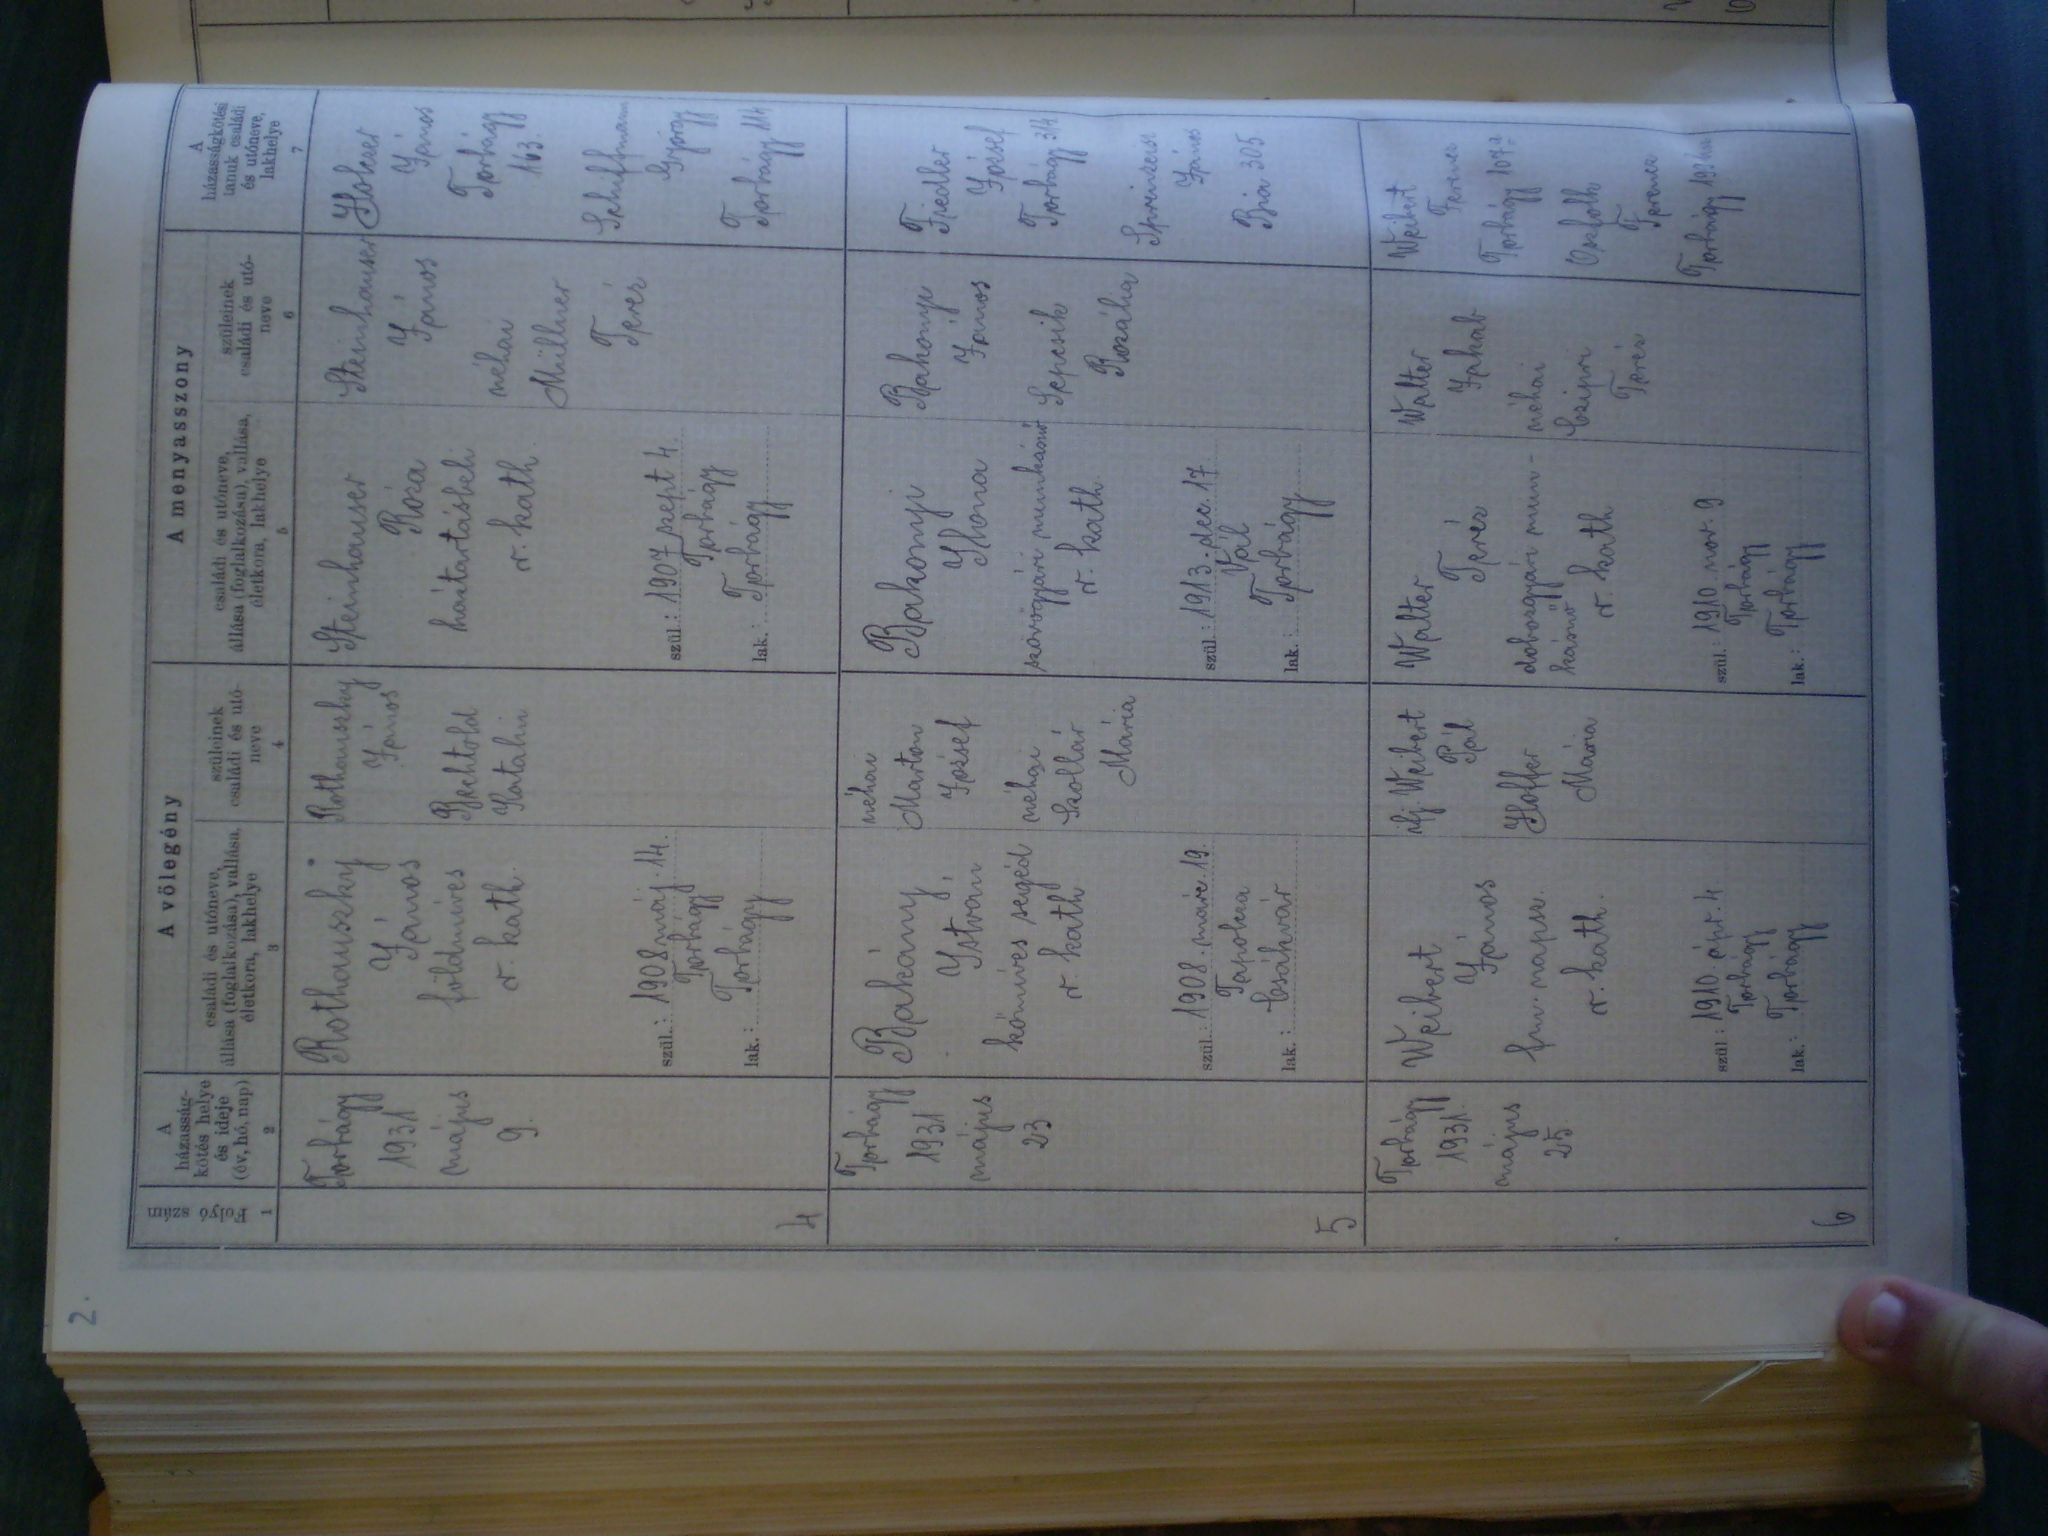 2.
A menyasszony
A vőlegény
1
Folyó szám
2
A
házasság-
kötés helye
és ideje
(év, hó, nap)
3
családi és utóneve,
állása (foglalkozása), vallása,
életkora, lakhelye
4
szüleinek
családi és utó-
neve
5
családi és utóneve,
állása (foglalkozása), vallása,
életkora, lakhelye
6
szüleinek
családi és utó-
neve
7
A
házasságkötési
tanuk családi
és utóneve,
lakhelye
4
Torbágy
1931
május
9.
Rothauszky
János
földmíves
r. kath.
szül.: 1908 máj. 14.
Torbágy
lak.: Torbágy
Rothauszky
János
Bechtold
Katalin
Steinhauser
Róza
háztartásbeli
r. kath.
szül.: 1907 szept 4
Torbágy
lak.: Torbágy
Steinhauser
János
néhai
Müllner
Teréz
János
Torbágy
163.
Schiffmann
György
Torbágy 114
5
Torbágy
1931
május
23
Bakány
István
kőmíves segéd
r. kath
szül.: 1908. márc. 19.
lak.: Csákvár
néhai
Marton
József
néhai
Szollár
Mária
Bakonyi
Ilona
szövőgyári munkásnő
r. kath.
szül.: 1913. dec. 17
Vál
lak.: Torbágy
Bakonyi
János
Sepcsik
Rozália
Friedler
József
Torbágy 314
János
Bia 305
6
Torbágy
1931.
május
25.
Weibert
János
fm. napsz.
r. kath.
szül: 1910. ápr. 4
Torbágy
lak.: Torbágy
ifj. Weibert
Pál
Hoffer
Mária
Walter
Teréz
dobozgyári mun-
kásnő
r. kath
szül: 1910. nov. 9
Torbágy
lak.: Torbágy
Walter
Jakab
néhai
Teréz
Weibert
Ferenc
Torbágy 107a
Oszfolk
Ferenc
Torbágy